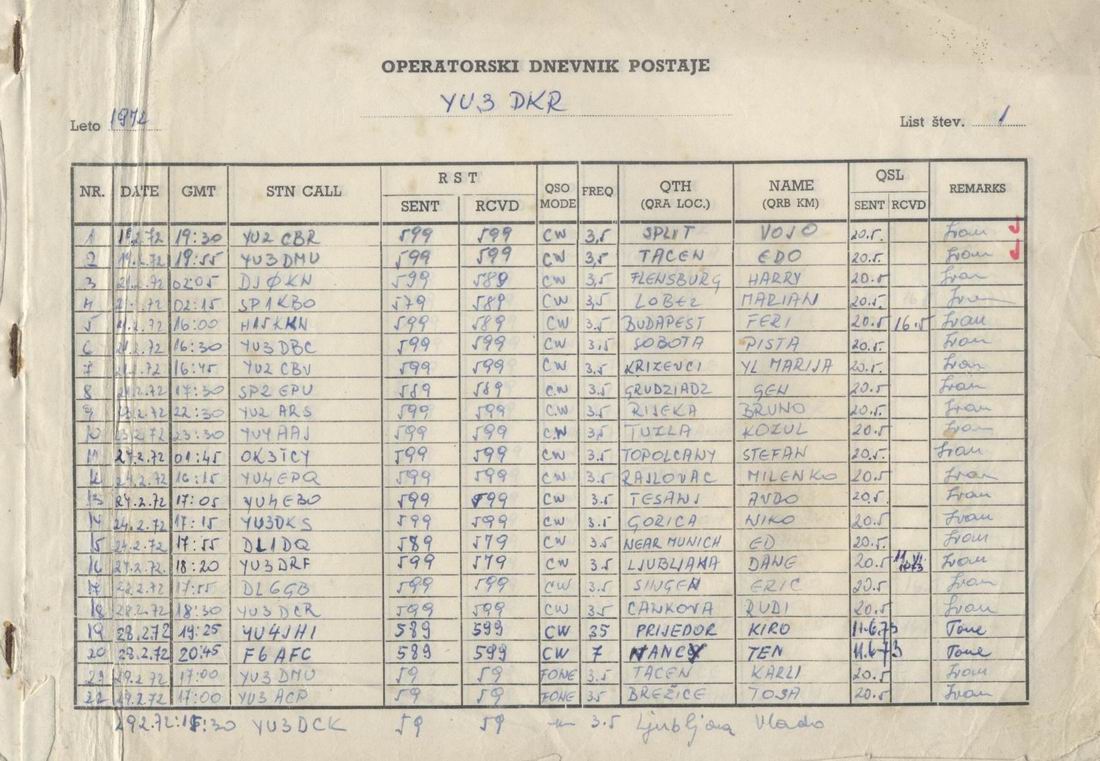 OPERATORSKI DNEVNIK POSTAJE
YU3 DKR
Leto 1972 List štev. 1
NR. DATE GMT STN CALL RST SENT RCVD QSO MODE FREQ QTH (QRA LOC.) NAME (QRB KM) QSL SENT RCVD REMARKS
1 19.2.72 19:30 YU2 CBR 599 599 CW 3,5 SPLIT VOJO 20.5. Ivan
2 19.2.72 19:55 YU3DMU 599 599 CW 3,5 TACEN EDO 20.5. Ivan
3 21.2.72 02:05 DJØKN 599 589 CW 3,5 FLENSBURG HARRY 20.5. Ivan
4 21.2.72 02:15 SP1KBO 579 589 CW 3,5 LOBEZ MARIAN 20.5. Ivan
5 21.2.72 16:00 599 589 CW 3.5 BUDAPEST FERI 20.5 16.5 Ivan
6 21.2.72 16:30 YU3DBC 599 599 CW 3.5 SOBOTA PISTA 20.5. Ivan
7 21.2.72 16:45 YU2 CBV 599 599 CW 3.5 KRIZEVCI YL MARIJA 20.5. Ivan
8 17:30 SP2 EPU 589 569 CW 3.5 GRUDZIADZ GEN 20.5 Ivan
9 23.2.72 22:30 YU2 ARS 599 599 CW 3.5 RIJEKA BRUNO 20.5 Ivan
10 23.2.72 23:30 YU4AAJ 599 599 CW 3,5 TUZLA KOZUL 20.5 Ivan
11 24.2.72 01:45 OK3TCY 599 599 CW 3.5 TOPOLCANY STEFAN 20.5. Ivan
12 24.2.72 16:15 YU4EPQ 599 599 CW 3.5 RAJLOVAC MILENKO 20.5 Ivan
13 24.2.72 17:05 YU4EBO 599 599 CW 3.5 TESANJ AVDO 20.5. Ivan
14 24.2.72 17:15 YU3DKS 599 599 CW 3.5 GORICA NIKO 20.5 Ivan
15 24.2.72 17:55 DL1DQ 589 579 CW 3.5 NEAR MUNICH ED 20.5 Ivan
16 24.2.72 18:20 YU3DRF 599 579 CW 3.5 LJUBLJANA DANE 20.5 Ivan
17 17:55 DL6GB 599 599 CW 3.5 SINGEN ERIC 20.5 Ivan
18 28.2.72 18:30 YU3DCR 599 599 CW 3.5 CANKOVA RUDI 20.5 Ivan
19 28.2.72 19:25 YU4JHI 589 599 CW 35 PRIJEDOR KIRO 11.6.73 Tone
20 28.2.72 20:45 F6AFC 589 599 CW 7 NANCY TEN 11.6.73 Tone
21 29.2.72 17:00 YU3DMU 59 59 FONE 3.5 TACEN KARLI 20.5 Ivan
22 29.2.72 17:00 YU3ACP 59 59 FONE 3.5 BREŽICE TOSA 20.5 Ivan
29.2.72 YU3DCK 59 59 3.5 Ljubljana Vlado